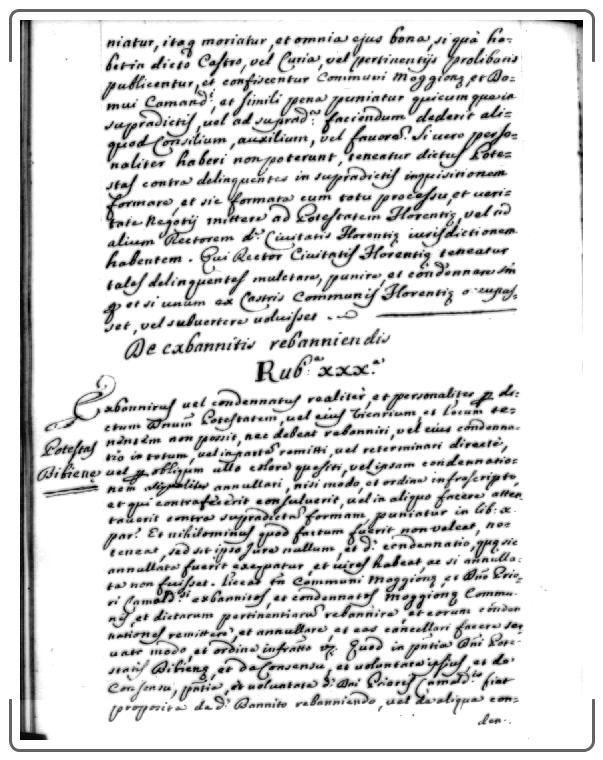 niatur, itaq moriatur, et omnia ejus bona, si quà ha-
bet in dicto Castro, vel Curia, vel pertinentijs prolibaris
publicentur, et confiscentur Communi Moggionę, et Do-
mui Camandi, et simili pena puniatur quicumque ia
supradictis, vel ad suprad.ᵃ faciendum dederit ali-
quod Consilium, auxilium, vel favorē. Si vero perso-
naliter haberi non poterunt, teneatur dictus Potes-
stas contra delinquentes in supradictis inquisitionem
formare, et sic formata cum totu processu, et veri-
tate Negotij mittere ad Potestatem Florentię, vel id
alium Rectorem d. Ciuitatis Florentię iurisdictionem
habentem. Qui Rector Ciuitatis Florentię teneatur
tales delinquentes multare, punire et condennare sin
et si unum ex Castris Communis Florentię
set, vel subvertere voluisset
De exbannitis rebanniendis
Rub.ᵃ xxx.ᵃ
Exbannitus vel condennatus realiter, et personaliter p di-
ctum Potestatem, vel eius Vicarium et locum te-
nentem non possit, nec debeat rebanniri, vel eius condenna-
Potestas
tio in totum, vel in partē remitti, vel reterminari directè,
Bibienę
vel p obliqum ullo colore quesiti, vel ipsam condennatio-
nem annullari, nisi modo, et ordine infrascripto,
et qui contrafecerit consuluerit, vel in aliquo facere atten
tauerit contra supradictā formam puniatur in lib: x.
par. Et nihilominus quod factum fuerit non valeat, no-
teneat, sed sit ipso Jure nullum, et d. condennatio, quę sic
annullata fuerit exequatur, et uires habeat ac si annulla-
ta non fuisset. liceat tn Communi Moggionę, et Dno Prio-
ri Camald.ⁱ exbannitos, et condennatos Moggionę Commu-
nis, et dictarum pertinentiarū rebannire, et eorum conden
nationes remittere, et annullare, et eas cancellari facere ser
uato modo, et ordine infratto Quod in pntia Dni Pote-
statis Bibienę, et de Consensu, et voluntate ipsius, et de
Consensu, pntia, et voluntate d. Dni Prioris Camald. fiat
proposita de d. Bannito rebanniendo, vel de aliqua con-
den-